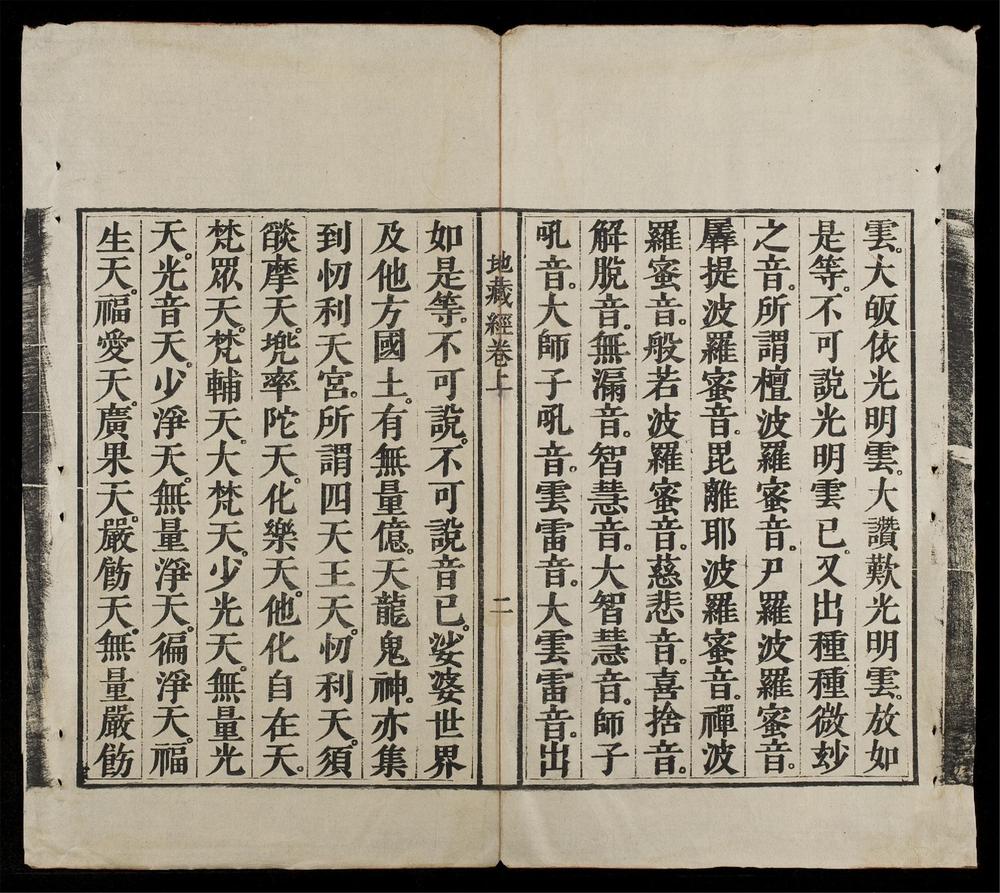 雲。大皈依光明雲。大讚歎光明雲。放如
是等。不可說光明雲已。又出種種微玅
之音。所謂檀波羅蜜音。尸羅波羅蜜音。
羼提波羅蜜音。毘離耶波羅蜜音。禪波
羅蜜音。般若波羅蜜音。慈悲音。喜捨音。
解脫音。無漏音。智慧音。大智慧音。師子
吼音。大師子吼音。雲雷音。大雲雷音。出
地藏經卷上
二
如是等。不可說。不可說音已。娑婆世界
及他方國土。有無量億。天龍鬼神。亦集
到忉利天宮。所謂四天王天。忉利天。須
燄摩天。兠率陀天。化樂天。他化自在天。
梵眾天。梵輔天。大梵天。少光天。無量光
天。光音天。少淨天。無量淨天。徧淨天。福
生天。福愛天。廣果天。嚴飭天。無量嚴飭